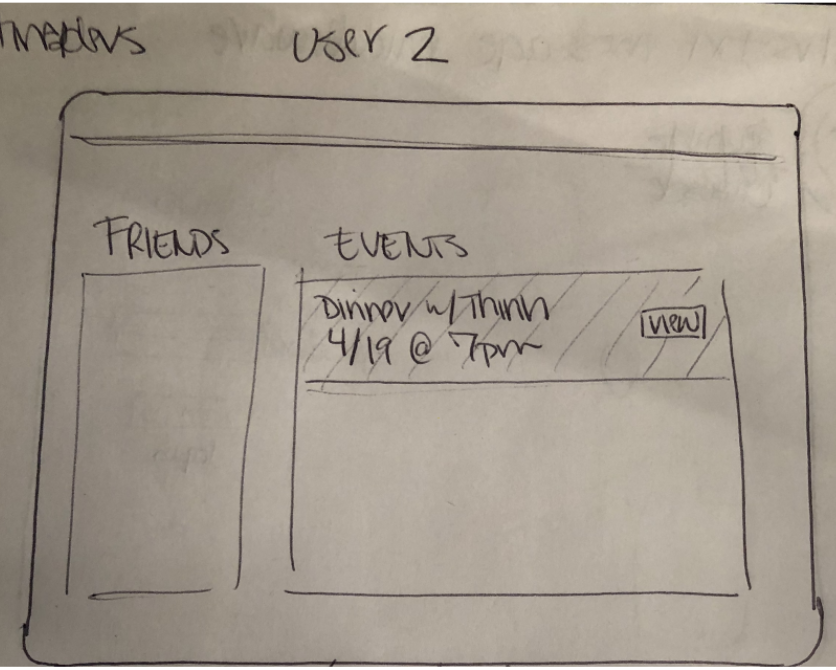 User 2
FRIENDS
EVENTS
Dinner w/ Thinh
4/19 @ 7pm
view